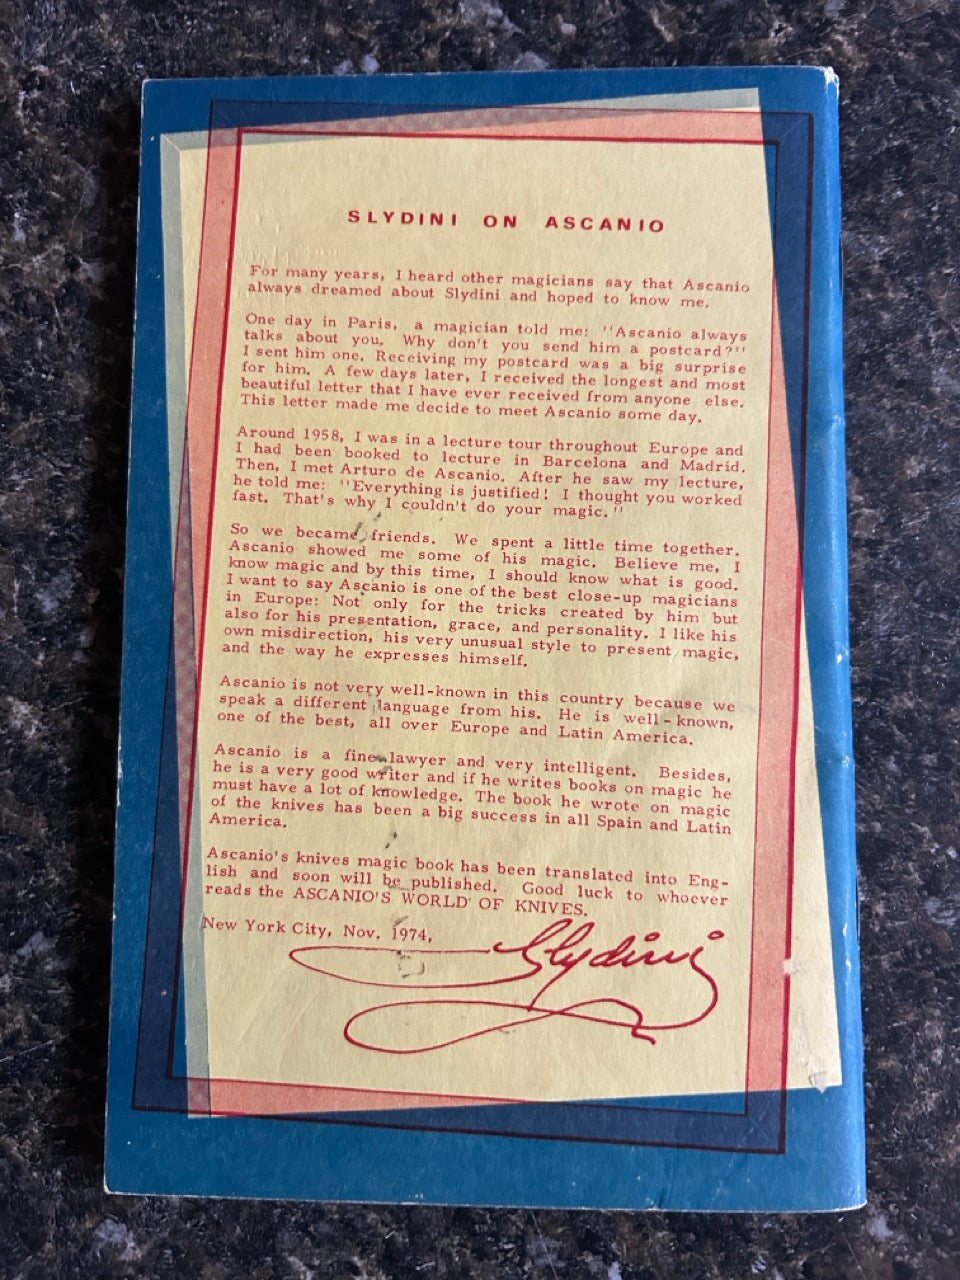 SLYDINI ON ASCANIO
For many years, I heard other magicians say that Ascanio
always dreamed about Slydini and hoped to know me.
One day in Paris, a magician told me: "Ascanio always
talks about you. Why don't you send him a postcard?"
I sent him one. Receiving my postcard was a big surprise
for him. A few days later, I received the longest and most
beautiful letter that I have ever received from anyone else.
This letter made me decide to meet Ascanio some day.
Around 1958, I was in a lecture tour throughout Europe and
I had been booked to lecture in Barcelona and Madrid.
Then, I met Arturo de Ascanio. After he saw my lecture,
he told me: "Everything is justified! I thought you worked
fast. That's why I couldn't do your magic."
So we became friends. We spent a little time together.
Ascanio showed me some of his magic. Believe me, I
know magic and by this time, I should know what is good.
I want to say Ascanio is one of the best close-up magicians
in Europe: Not only for the tricks created by him but
also for his presentation, grace, and personality. I like his
own misdirection, his very unusual style to present magic,
and the way he expresses himself.
Ascanio is not very well-known in this country because we
speak a different language from his. He is well-known,
one of the best, all over Europe and Latin America.
Ascanio is a fine lawyer and very intelligent. Besides,
he is a very good writer and if he writes books on magic he
must have a lot of knowledge. The book he wrote on magic
of the knives has been a big success in all Spain and Latin
America.
Ascanio's knives magic book has been translated into Eng-
lish and soon will be published. Good luck to whoever
reads the ASCANIO'S WORLD OF KNIVES.
New York City, Nov. 1974,
Slydini